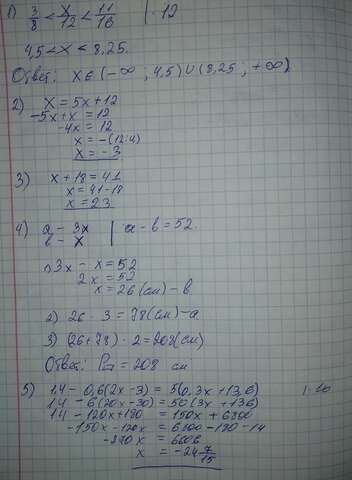 1) 3/8 < x/12 < 11/16 | · 12
4,5 < x < 8,25.
Ответ: x ∈ (-∞ ; 4,5) ∪ (8,25 ; +∞)
2) x = 5x + 12
-5x + x = 12
-4x = 12
x = -(12:4)
x = -3
3) x + 18 = 41
x = 41 - 18
x = 23
4) a - 3x | a - b = 52.
b - x
1) 3x - x = 52
2x = 52
x = 26 (см) - b
2) 26 · 3 = 78 (см) - a
3) (26 + 78) · 2 = 208 (см)
Ответ: P = 208 см
5) 14 - 0,6(2x - 3) = 5(0,3x + 13,6)
14 - 6(20x - 30) = 50(3x + 136)
14 - 120x + 180 = 150x + 6800
-150x - 120x = 6800 - 180 - 14
-270x = 6606
x = -24 7/15